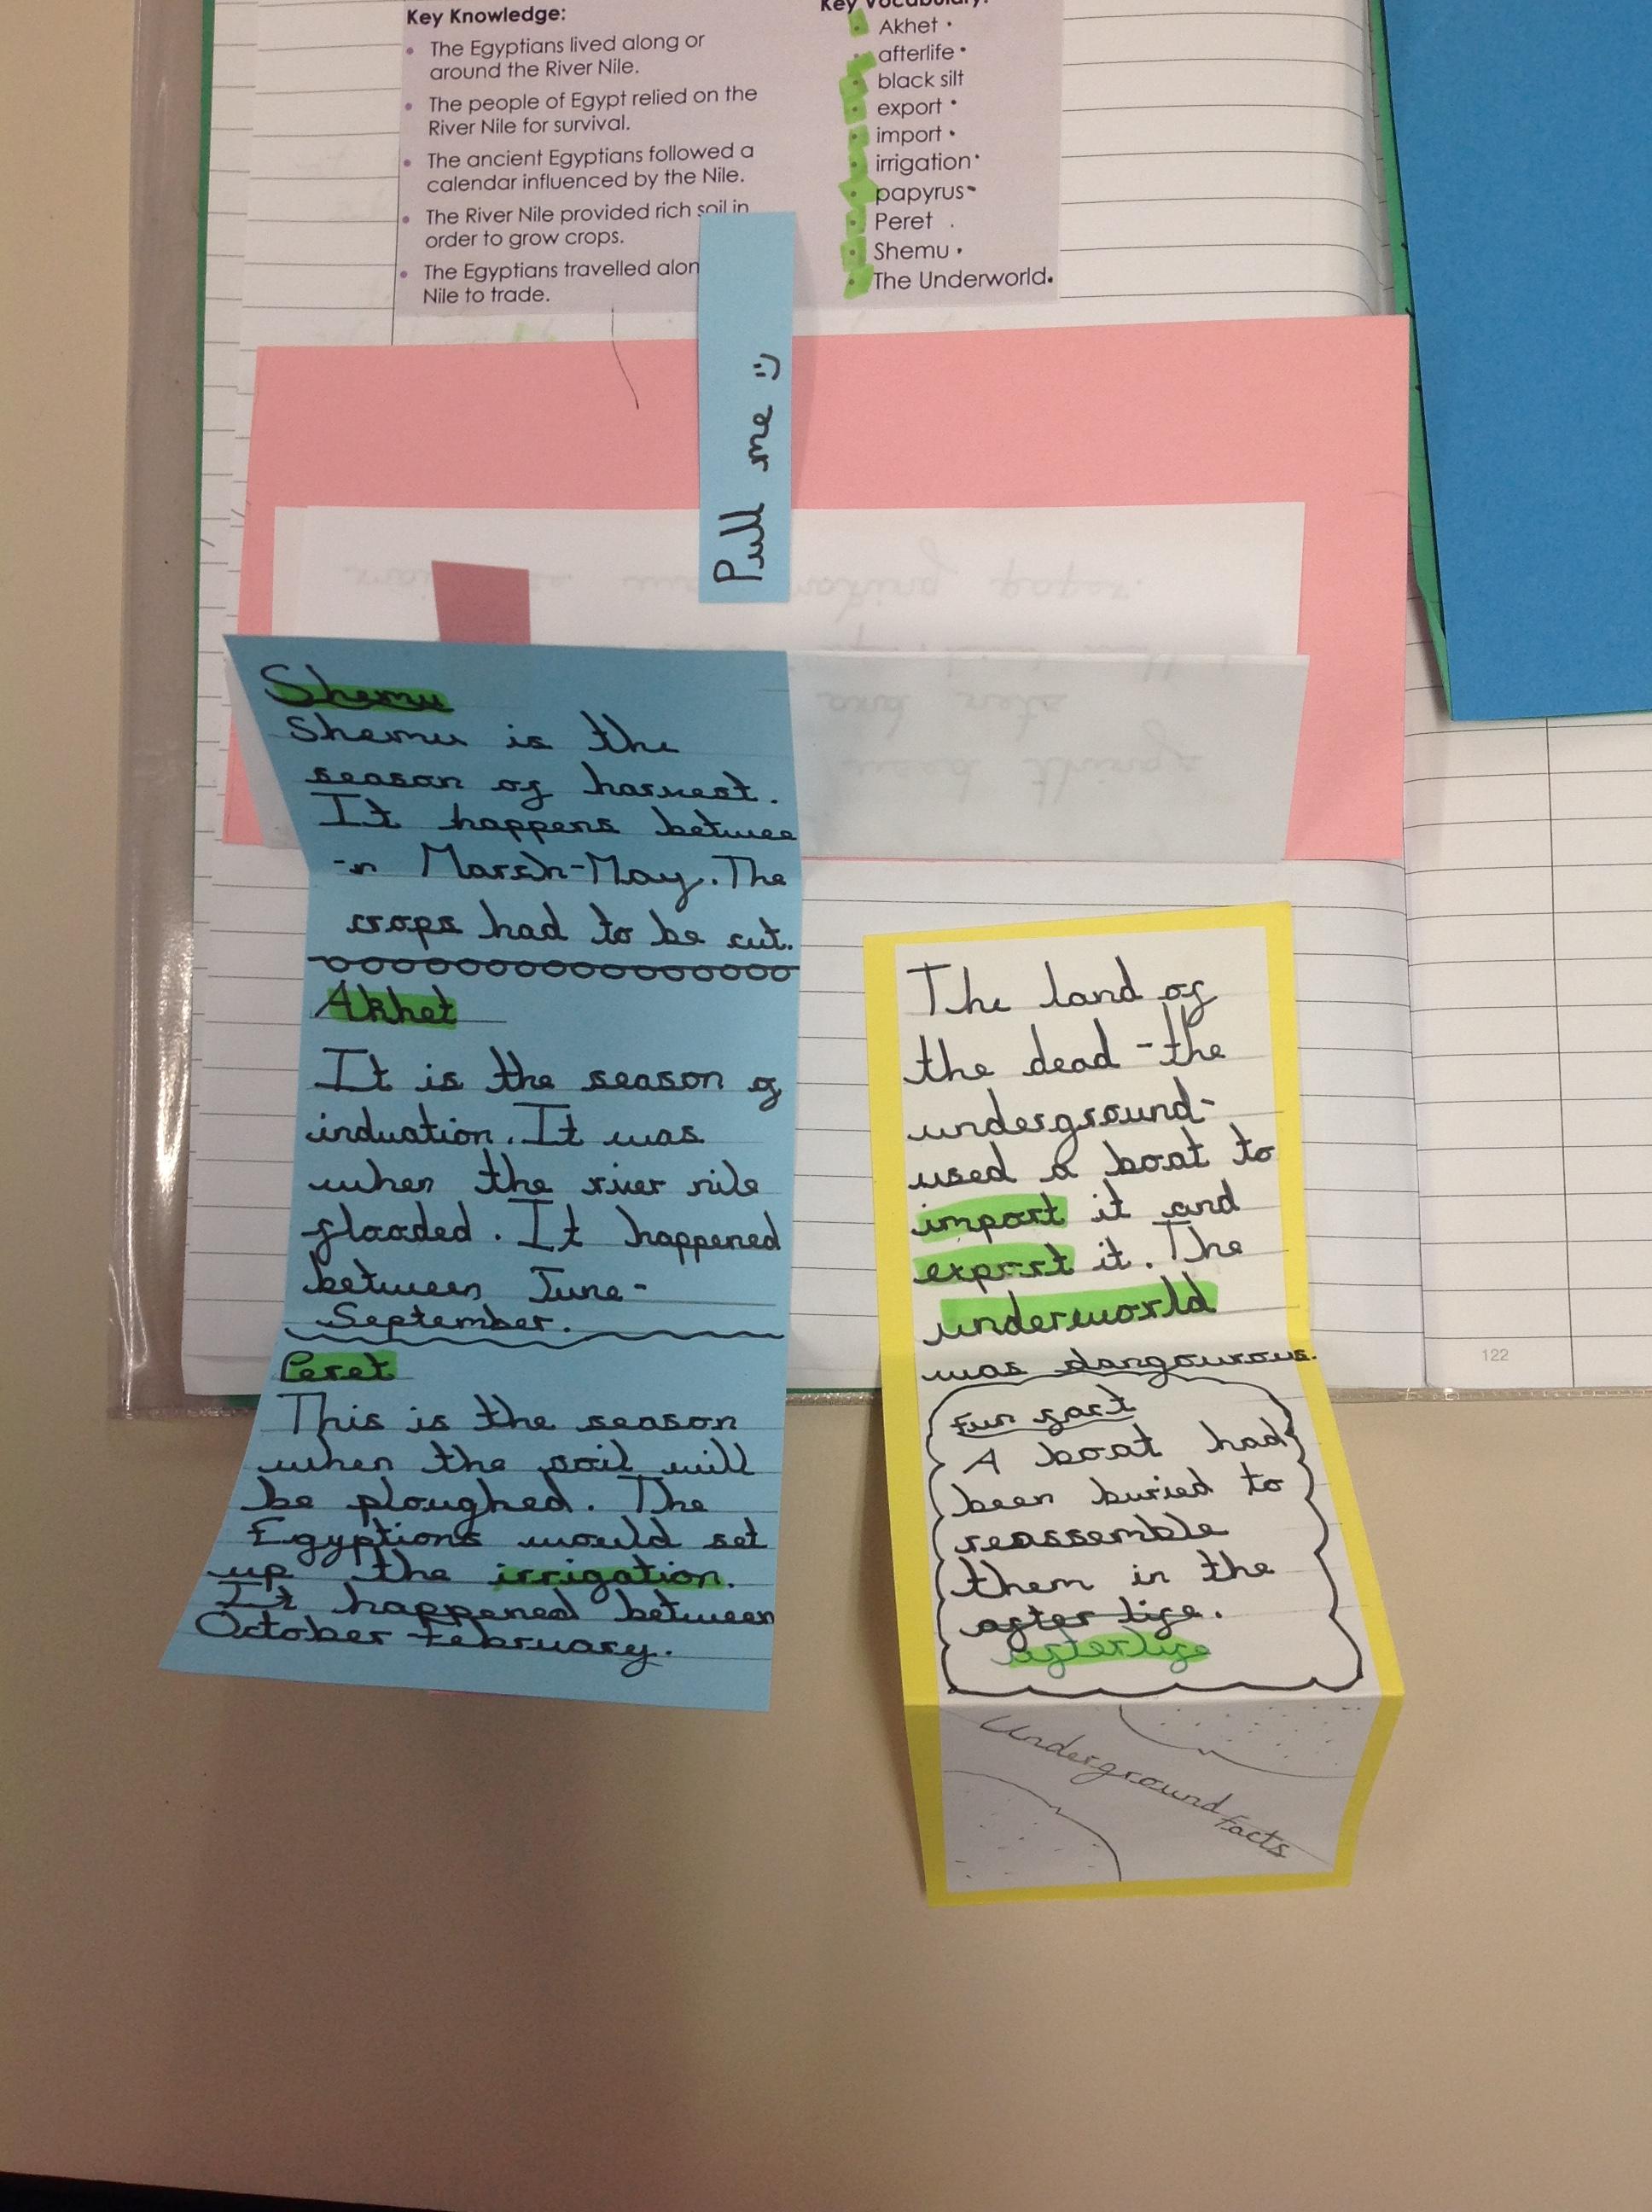 Key Knowledge:
• The Egyptians lived along or
around the River Nile.
• The people of Egypt relied on the
River Nile for survival.
• The ancient Egyptians followed a
calendar influenced by the Nile.
• The River Nile provided rich soil in
order to grow crops.
• The Egyptians travelled alon
Nile to trade.
Key Vocabulary:
• Akhet
• afterlife
• black silt
• export
• import
• irrigation
• papyrus
• Peret
• Shemu
• The Underworld.
Pull me :)
Shemu
Shemu is the
season of harvest.
It happens betwee
-n March-May. The
crops had to be cut.
Akhet
It is the season of
induation. It was
when the river nile
flooded. It happened
between June-
September.
Peret
This is the season
when the soil will
be ploughed. The
Egyptions would set
up the irrigation.
It happened between
October-February.
The land of
the dead -the
underground-
used a boat to
import it and
export it. The
underworld
was dangourous.
Fun fact
A boat had
been buried to
reassemble
them in the
after life.
afterlife
Underground Facts
122